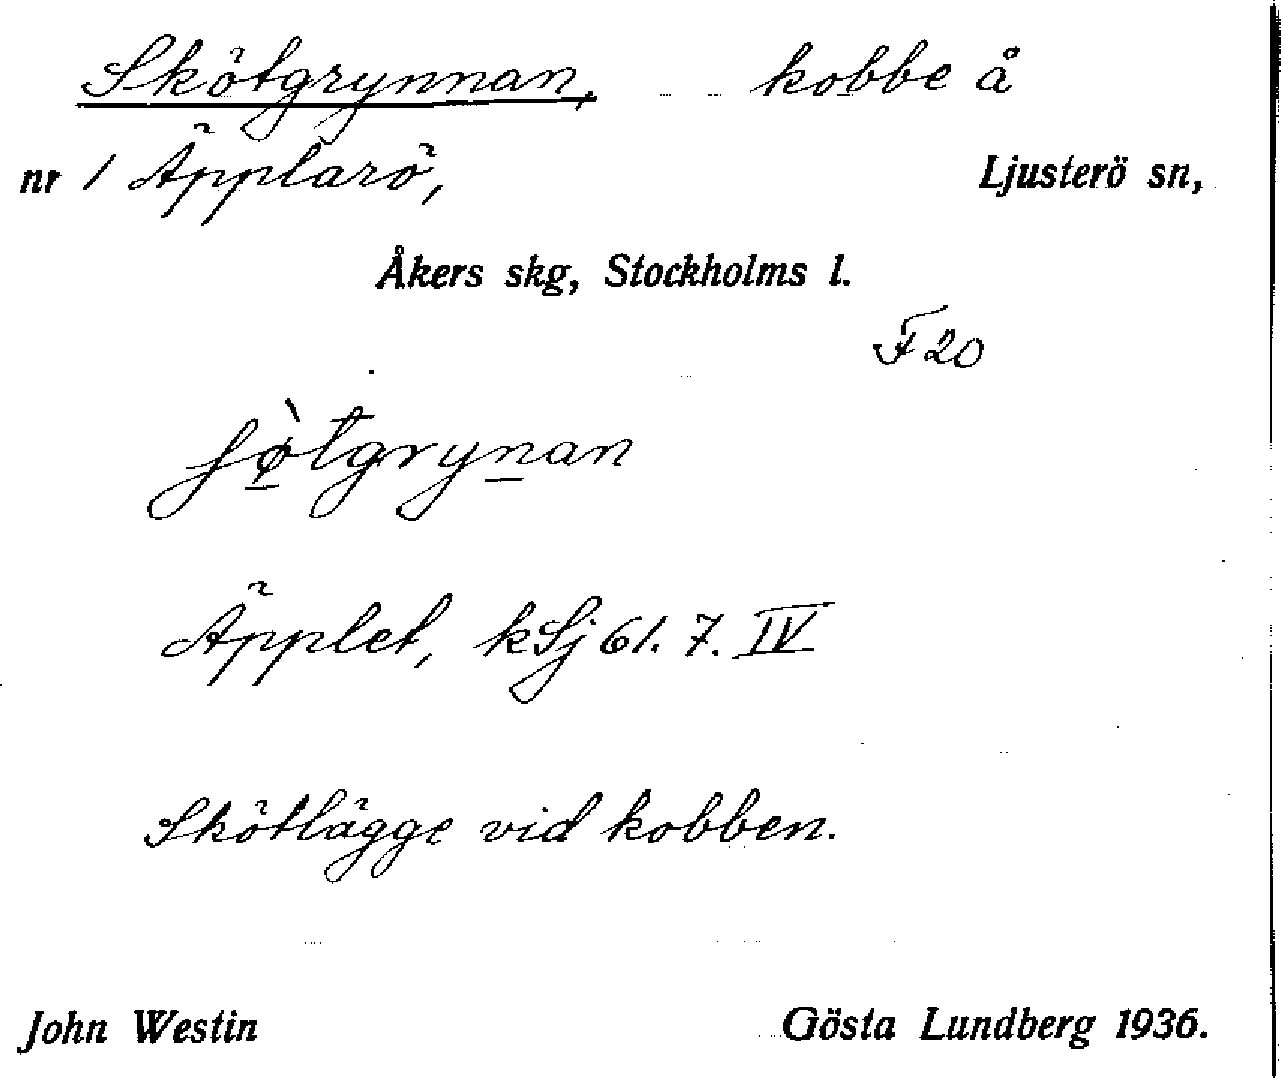 Skötgrynnan, kobbe å
nr 1 Äpplarö, Ljusterö sn,
Åkers skg, Stockholms l.
F 20
ʃø̀tgrynan
Äpplet, kSj 61. 7. IV
Skötlägge vid kobben.
John Westin Gösta Lundberg 1936.